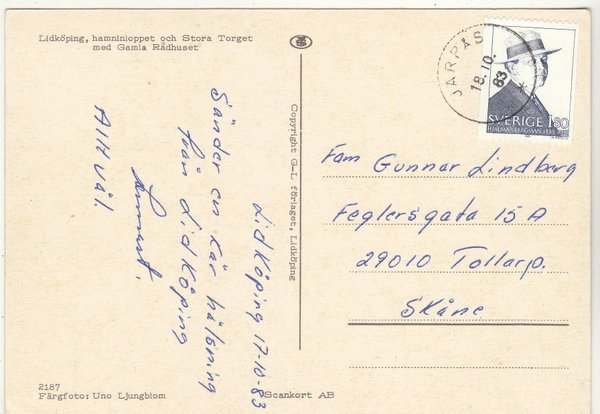 Lidköping, hamninloppet och Stora Torget
med Gamla Rådhuset
Lidköping 17-10-83
Sänder en kär hälsning
från Lidköping
Lennart.
Allt väl.
2187
Färgfoto: Uno Ljungblom
Copyright G-L förlaget, Lidköping
Scankort AB
JÄRPÅS
18.10.
83
SVERIGE 180
HJALMAR BERGMAN 1883
Fam Gunnar Lindberg
Feglersgata 15 A
29010 Tollarp.
Skåne